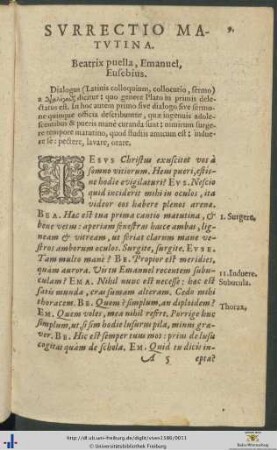 SVRRECTIO MA-
TVTINA.
9.
Beatrix puella, Emanuel,
Eusebius.
Dialogus (Latinis colloquium, collocutio, sermo)
dicatur: quo genere Plato in primis dele-
ctatus est. In hoc autem primo sive dialogo sive sermo-
ne quinque officia describuntur, quæ ingenuis adole-
scentibus & pueris mane curanda sunt: nimirum surge-
re tempore matutino, quod studiis amicum est: indue-
re se: pectere, lavare, orare.
IESVS Christus exuscitet vos à
somno vitiorum. Hem pueri, esti-
ne hodie evigilaturi? EVS. Nescio
quid inciderit mihi in oculos, ita
videor eos habere plenos arena.
BEA. Hæc est tua prima cantio matutina, &
bene vetus: aperiam fenestras hasce ambas, lig-
neam & vitream, ut feriat clarum mane ve-
stros amborum oculos. Surgite, surgite. EVSE.
Tam multo mane? BE. Propior est meridies,
quàm aurora. Vin tu Emanuel recentem subu-
culam? EMA. Nihil nunc est necesse: hæc est
satis munda, cras sumam alteram. Cedo mihi
thoracem. BE. Quem? simplum, an diploidem?
EM. Quem voles, mea nihil refert. Porrige huc
simplum, ut, si sim hodie lusurus pila, minus gra-
ver. BE. Hic est semper tuus mos: prius de lusu
cogitas quàm de schola. EM. Quid tu dicis in-
1. Surgere.
11. Induere.
Subucula.
Thorax.
A 5
epta?
http://dl.ub.uni-freiburg.de/diglit/vives1588/0011
© Universitätsbibliothek Freiburg